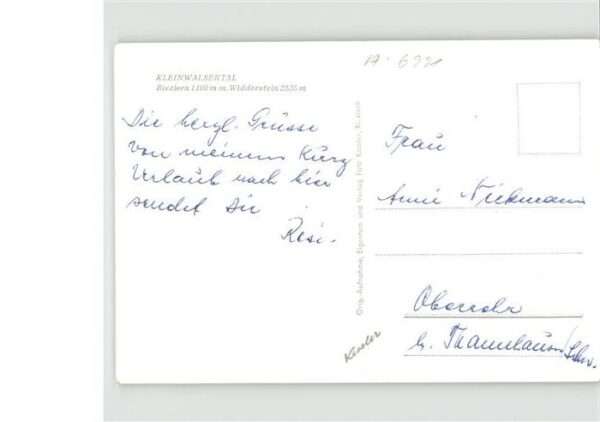 A. 6991
KLEINWALSERTAL
Riezlern 1100 m m. Widderstein 2535 m
Die herzl. Grüsse
von meinem Kurz
Verlaub nach hier
sendet Dir
Resi.
Orig.-Aufnahme, Eigentum und Verlag Foto Kessler,
Frau
Annie
Oberrohr
b. Thannhausen/Schw.
Kessler